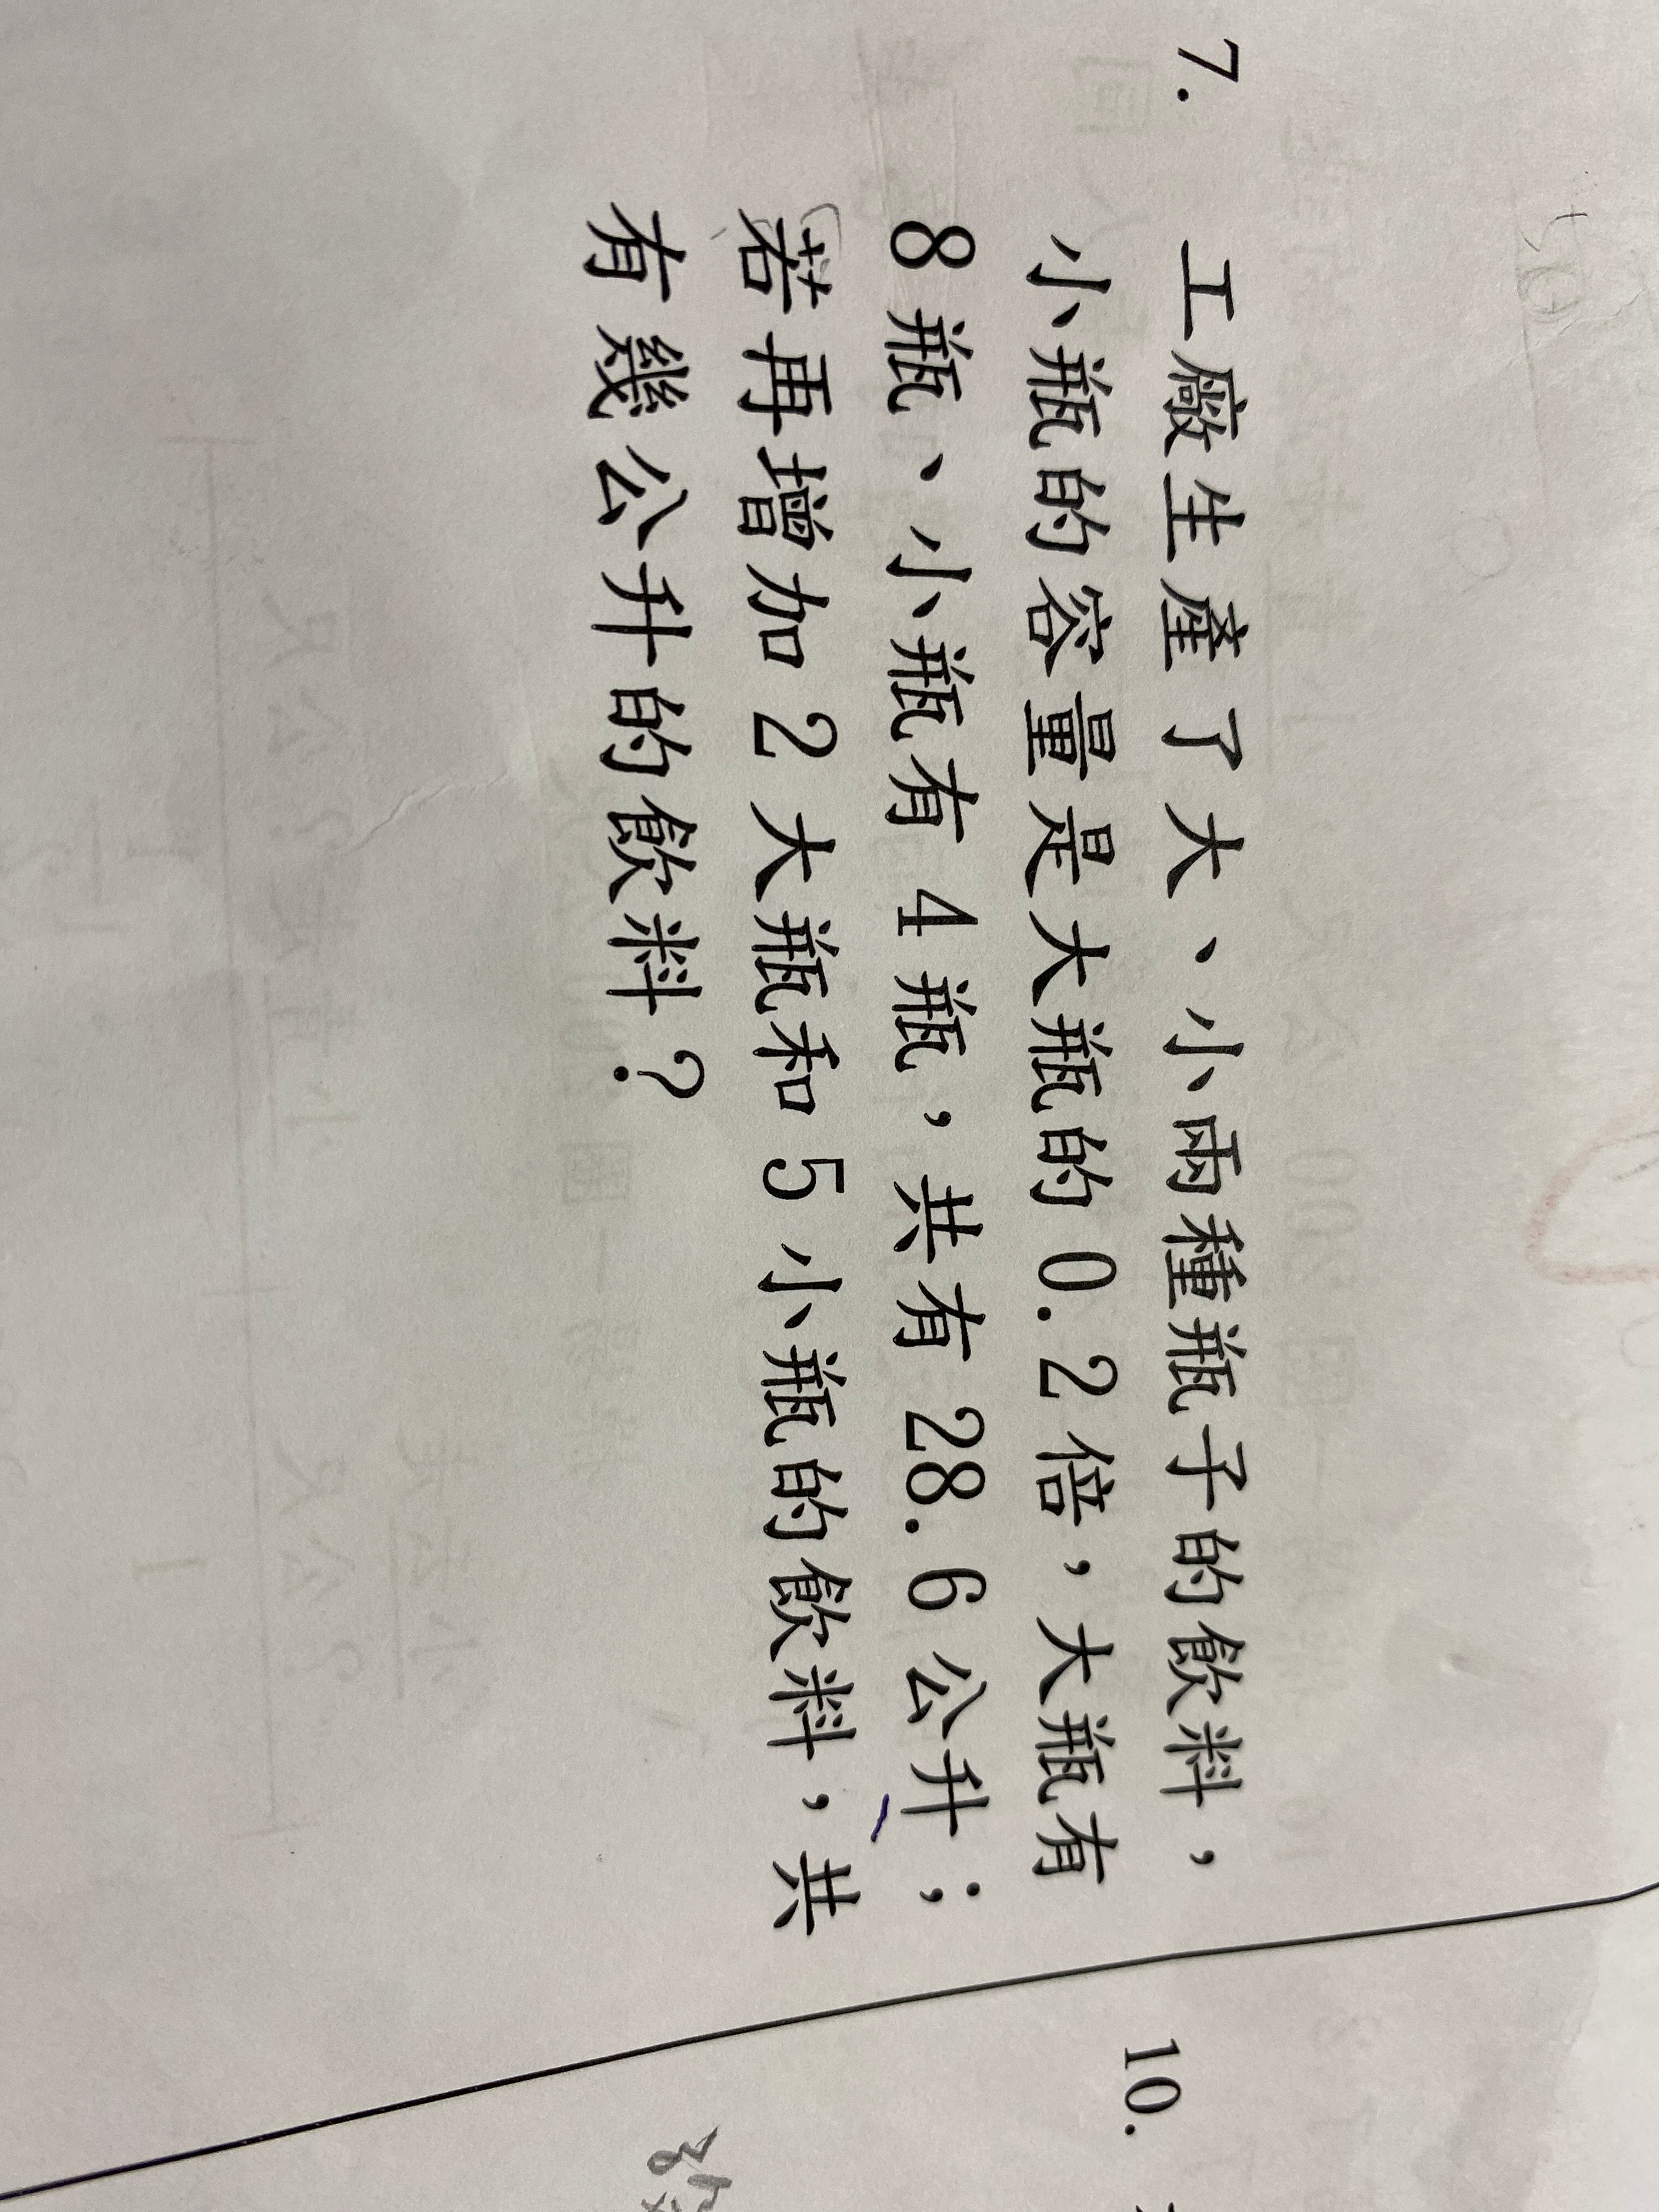 7. 工廠生產了大、小兩種瓶子的飲料，
小瓶的容量是大瓶的 0.2 倍，大瓶有
8 瓶、小瓶有 4 瓶，共有 28.6 公升；
若再增加 2 大瓶和 5 小瓶的飲料，共
有幾公升的飲料？
10.